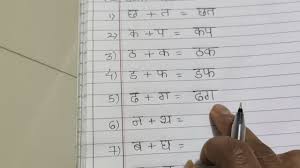 1) छ + त = छत
2) क + प = कप
3) ठ + क = ठक
4) ड + फ = डफ
5) ढ + ग = ढग
6) न + थ =
7) ब + घ =